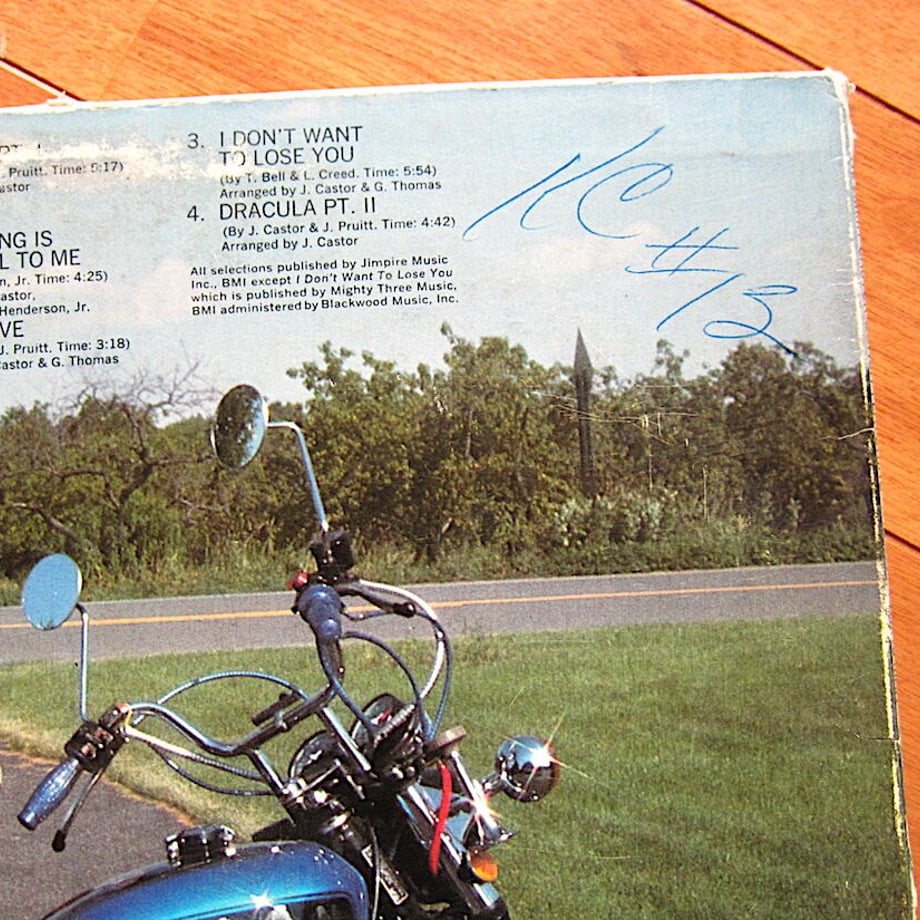 Pruitt. Time: 5:17)
3. I DON'T WANT
TO LOSE YOU
(By T. Bell & L. Creed. Time: 5:54)
Arranged by J. Castor & G. Thomas
4. DRACULA PT. II
(By J. Castor & J. Pruitt. Time: 4:42)
Arranged by J. Castor
NG IS
L TO ME
n, Jr. Time: 4:25)
astor,
Henderson, Jr.
VE
J. Pruitt. Time: 3:18)
Castor & G. Thomas
All selections published by Jimpire Music
Inc., BMI except I Don't Want To Lose You
which is published by Mighty Three Music,
BMI administered by Blackwood Music, Inc.
KC
#13